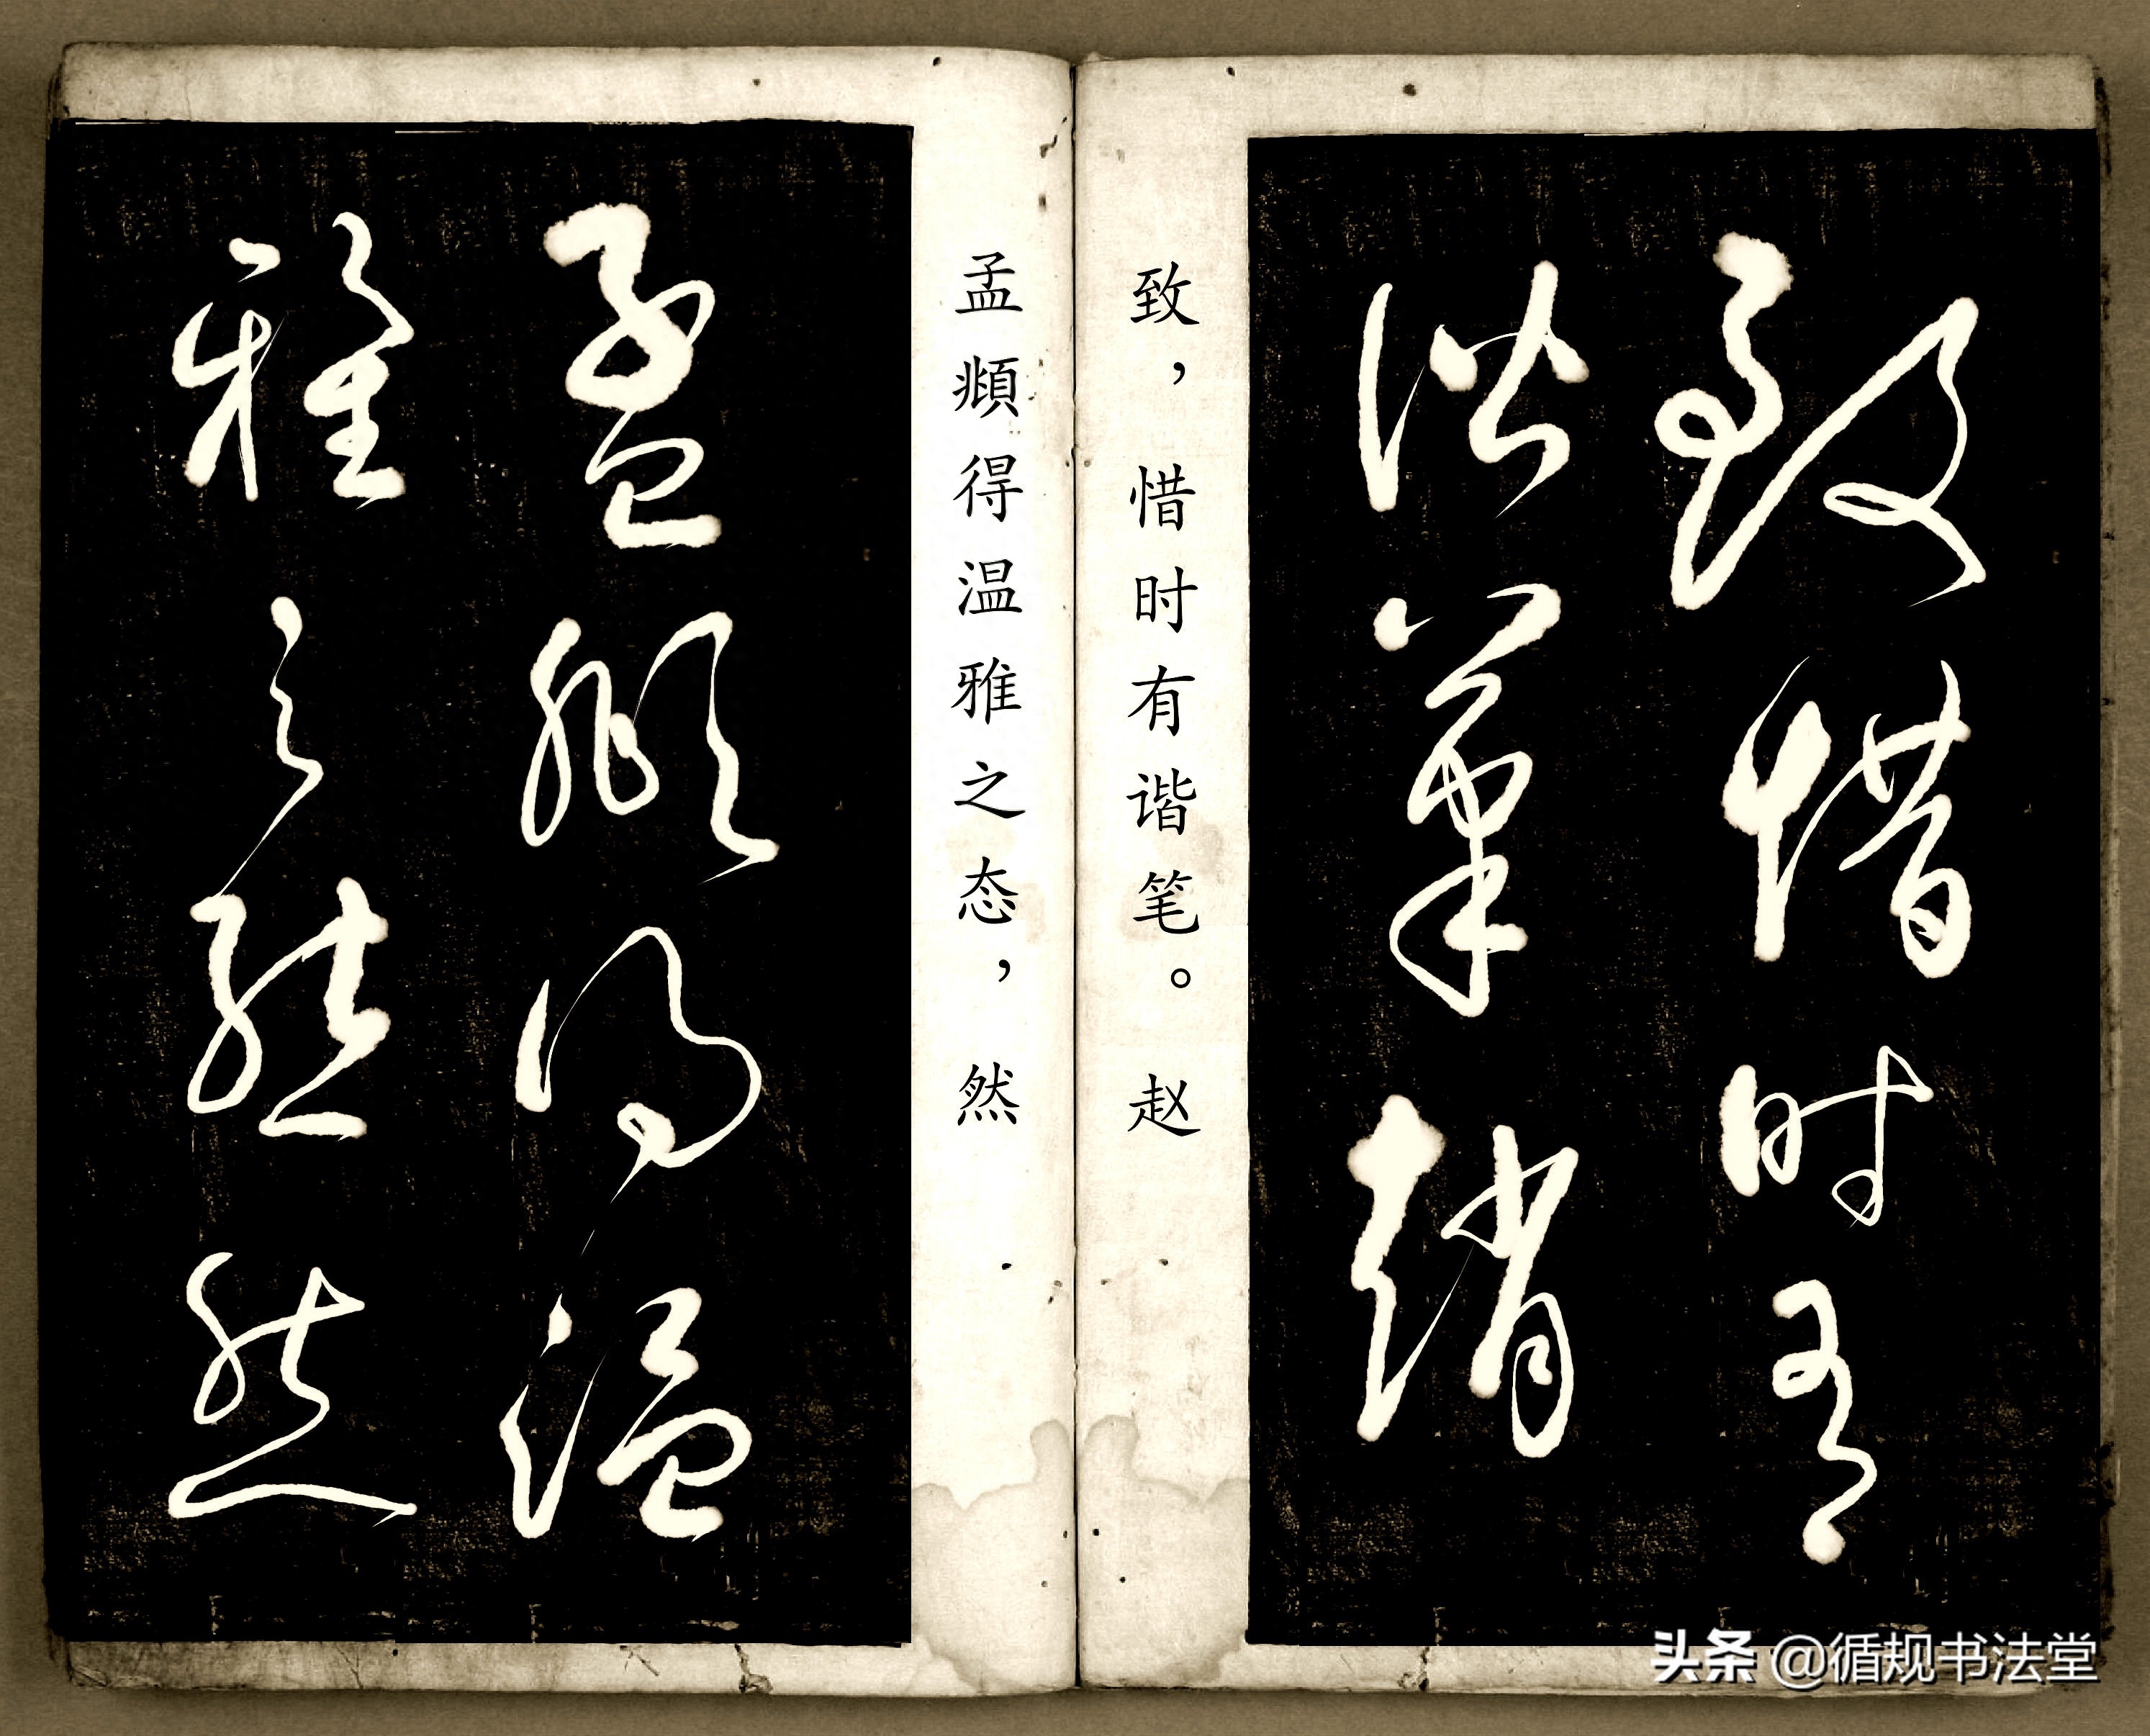 致惜时有
谐筆趙
致，惜时有谐笔。赵
孟頫得温雅之态，然
孟頫得温
雅之態然
头条 @循规书法堂